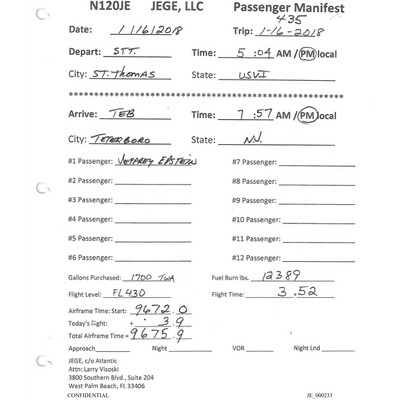 N120JE JEGE, LLC Passenger Manifest
435
Date: 1/16/2018 Trip: 1-16-2018
Depart: STT. Time: 5:04 AM / PM local
City: ST. Thomas State: USVI
Arrive: TEB Time: 7:57 AM / PM local
City: TETERBORO State: N.J.
#1 Passenger: JEFFREY EPSTEIN #7 Passenger:
#2 Passenger: #8 Passenger:
#3 Passenger: #9 Passenger:
#4 Passenger: #10 Passenger:
#5 Passenger: #11 Passenger:
#6 Passenger: #12 Passenger:
Gallons Purchased: 1700 TWA Fuel Burn lbs. 12389
Flight Level: FL430 Flight Time: 3.52
Airframe Time: Start: 9672.0
Today's flight: 3.9
Total Airframe Time = 9675.9
Approach Night VOR Night Lnd
JEGE, c/o Atlantic
Attn: Larry Visoski
3800 Southern Blvd., Suite 204
West Palm Beach, FL 33406
CONFIDENTIAL JE_000233